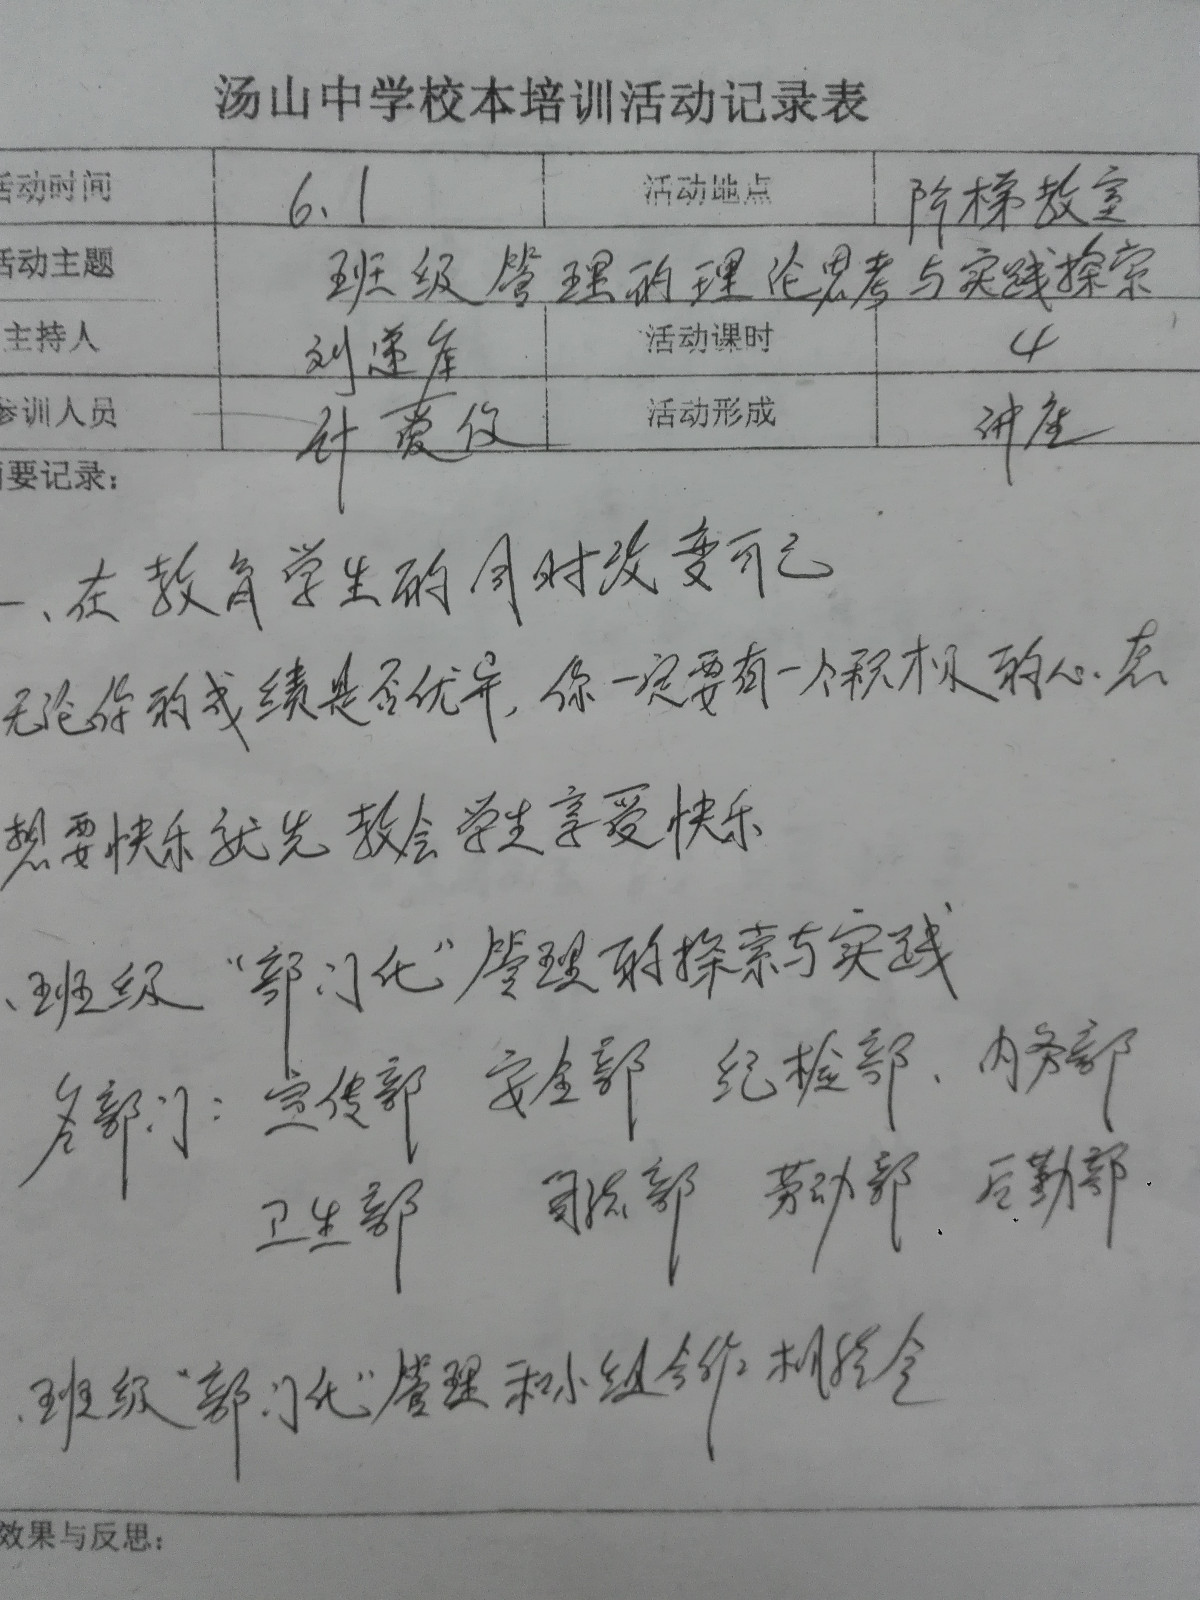 汤山中学校本培训活动记录表
活动时间 6.1 活动地点 阶梯教室
活动主题 班级管理的理论思考与实践探索
主持人 刘 活动课时 4
参训人员 爱仪 活动形成 讲座
要记录：
一、在教育学生的同时改变自己
无论你的成绩是否优异，你一定要有一个积极的心态
想要快乐就先教会学生享受快乐
、班级“部门化”管理的探索与实践
各部门：宣传部 安全部 纪检部、内务部
卫生部 部 劳动部 后勤部
、班级“部门化”管理和小组合作相结合
效果与反思：